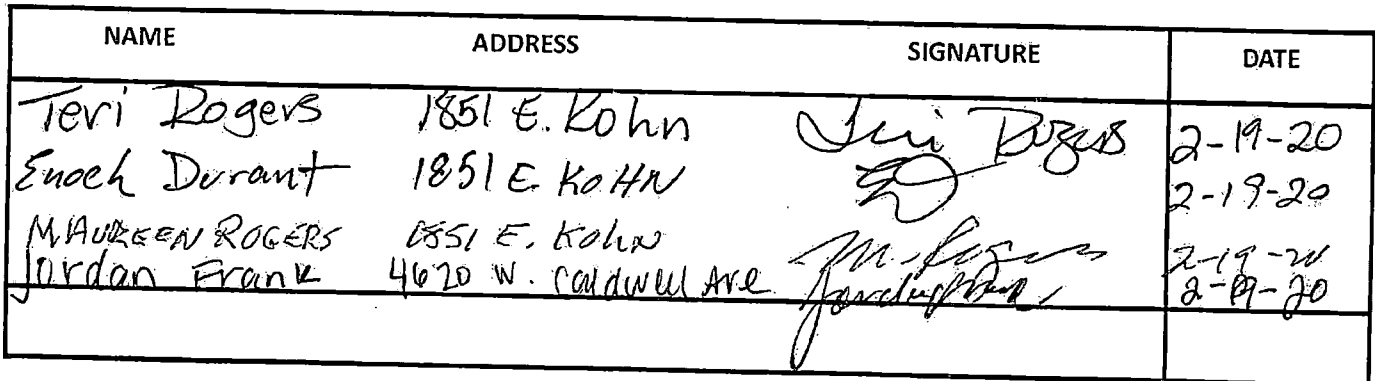 NAME ADDRESS SIGNATURE DATE
Teri Rogers 1851 E. Kohn Teri Rogers 2-19-20
Enoch Durant 1851 E. KOHN ED 2-19-20
MAUREEN ROGERS 1851 E. Kohn M. Rogers 2-19-20
Jordan Frank 4620 W. Caldwell Ave Jordan Frank 2-19-20